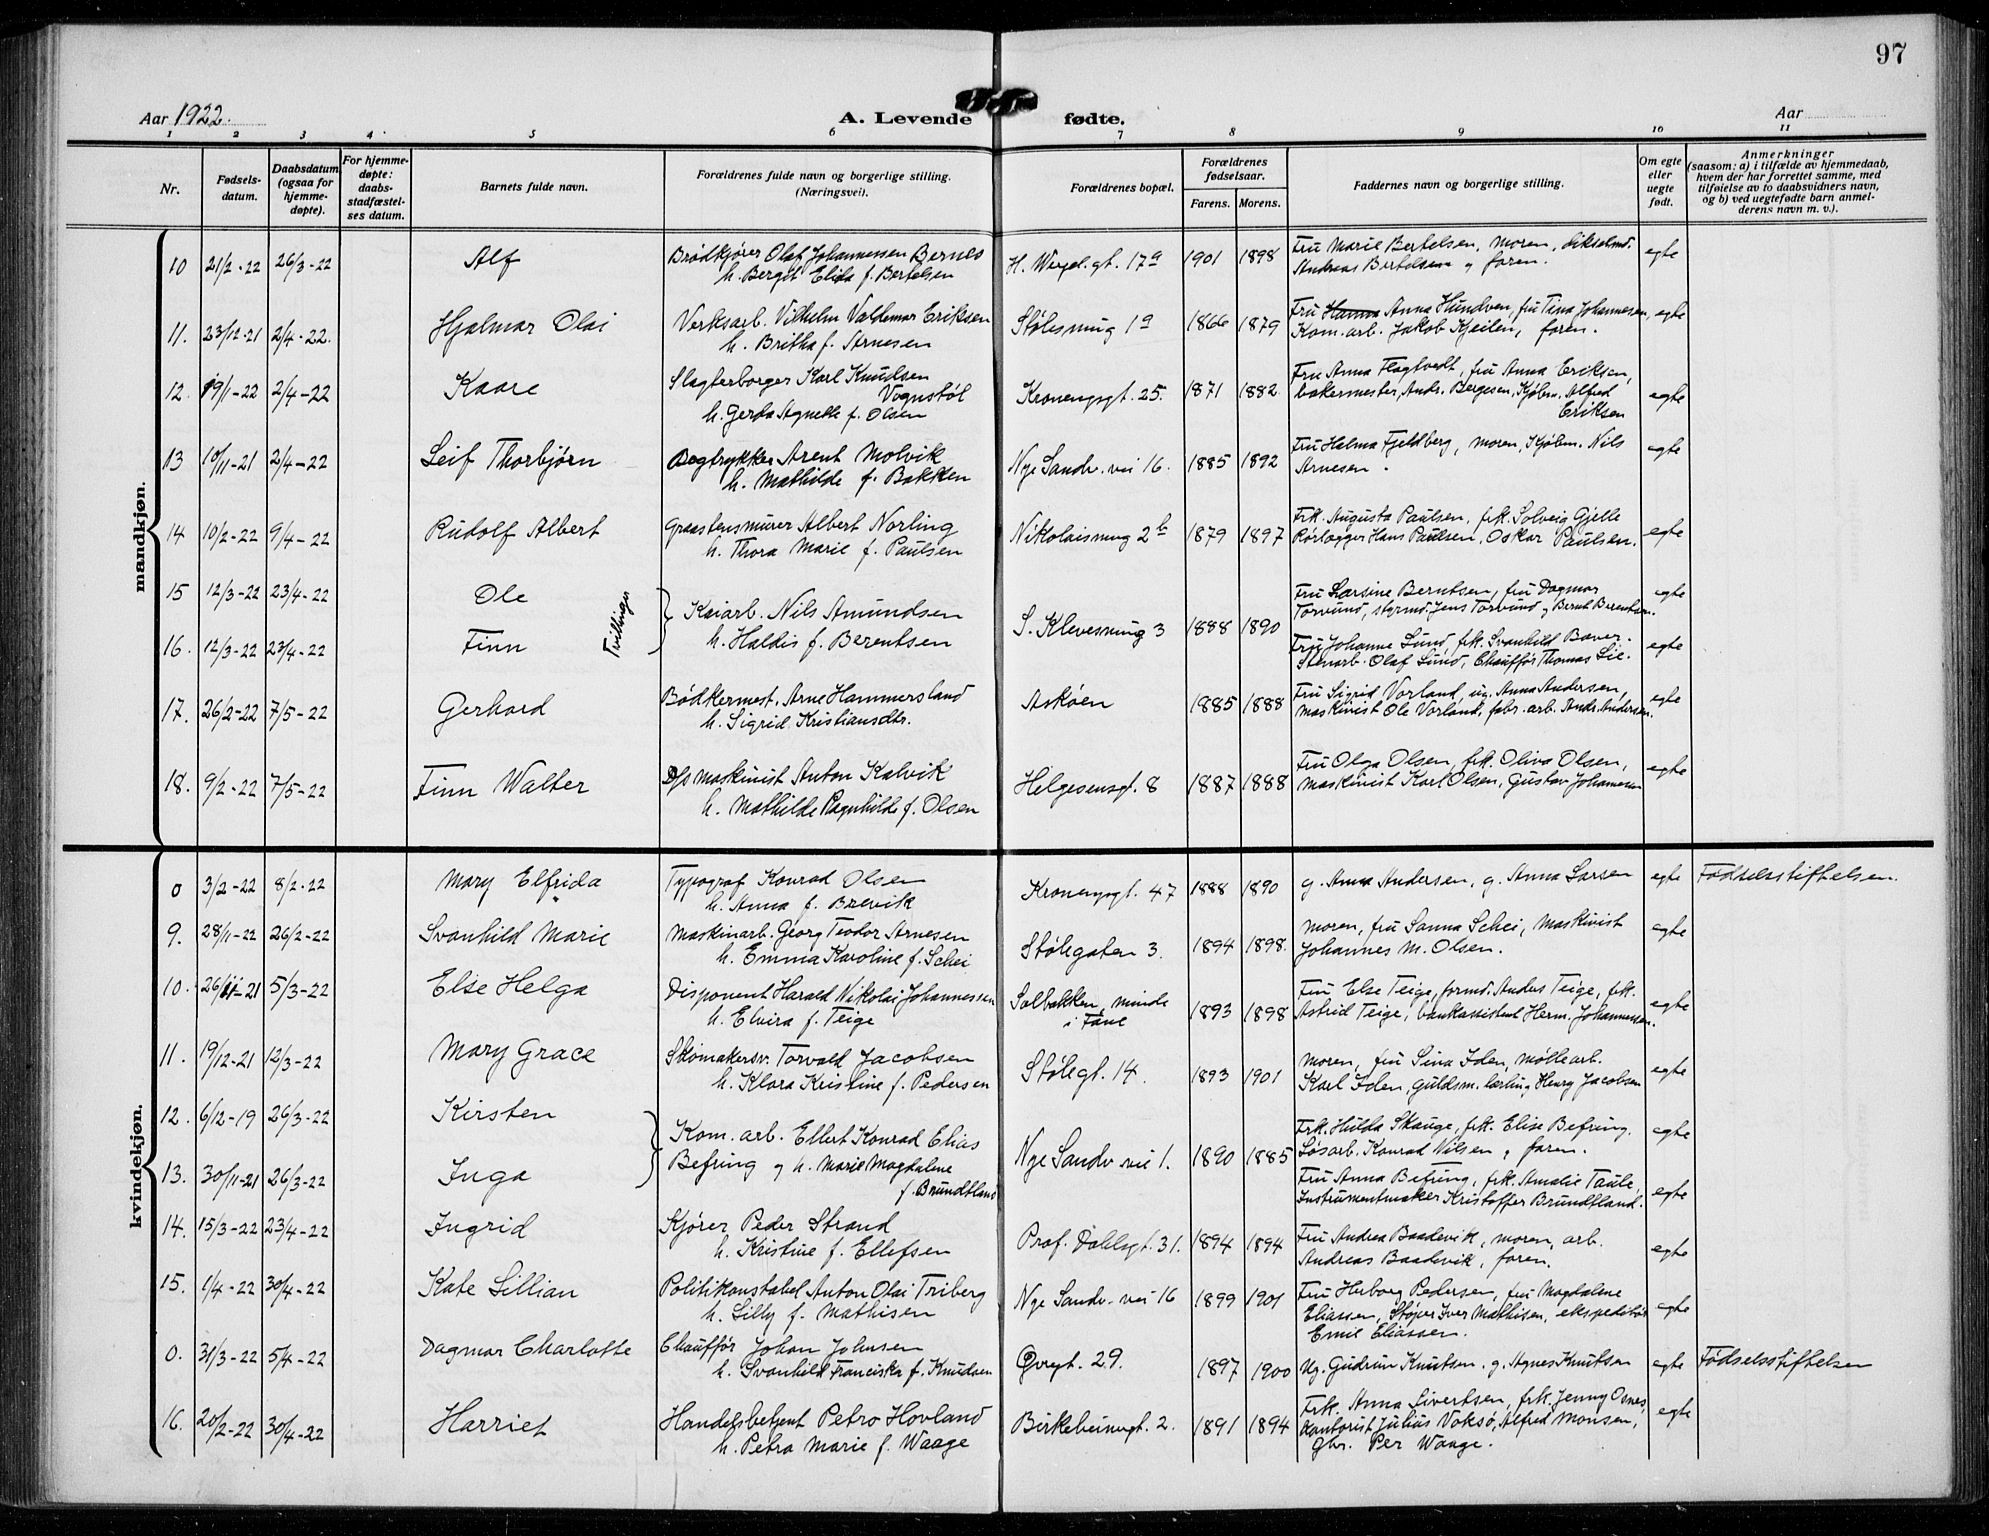 97
Aar 1922. A. Levende fødte. Aar
1 2 3 4 5 6 7 8 9 10 11
Nr.
Fødsels-
datum.
Daabsdatum
(ogsaa for
hjemme-
døpte).
For hjemme-
døpte:
daabs-
stadfæstel-
ses datum.
Barnets fulde navn.
Forældrenes fulde navn og borgerlige stilling.
(Næringsvei).
Forældrenes bopæl.
Forældrenes
fødselsaar.
Farens. Morens.
Faddernes navn og borgerlige stilling.
Om egte
eller
uegte
født.
Anmerkninger
(saasom: a) i tilfælde av hjemmedaab,
hvem der har forrettet samme, med
tilføielse av to daabsvidners navn,
og b) ved uegtefødte barn anmel-
derens navn m. v.).
mandkjøn.
10 21/2-22 26/3-22 Alf Brødkjører Olaf Johannessen Bernes H. Wergel. gt. 17a 1901 1898 Fru Marie Bertelsen, moren, egte
h. Bergit Elida f. Bertelsen Andreas Bertelsen, faren.
11. 23/12-21 2/4-22. Hjalmar Olai Verksarb. Vilhelm Valdemar Eriksen Stølesmug 1a 1866 1879 Fru Hanna Anna Hundven, fru Tina Johannesen, egte
h. Britha f. Arnesen Kom. arb. Jakob Kjeilen, faren.
12. 19/1-22 2/4-22 Kaare Slagterborger Karl Knudsen Kronengsgt. 25. 1871 1882 Fru Anna Flagtvedt, fru Anna Eriksen, egte
Vognstøl bakermester, Andr. Bergesen, Kjøbm. Alfred
h. Gerda Agnette f. Olsen Eriksen
13 10/11-21 2/4-22 Leif Thorbjørn Bogtrykker Arent Molvik Nye Sandv. vei 16. 1885 1892 Fru Halma Fjeldberg, moren, Kjøbm. Nils egte
h. Mathilde f. Bakken Arnesen.
14 10/2-22 9/4-22 Rudolf Albert Graastensmurer Albert Norling Nikolaismug 2b 1879 1897 Frk. Augusta Paulsen, frk. Solveig Gjelle egte
h. Thora Marie f. Paulsen Rørlægger Hans Paulsen, Oskar Paulsen.
15 12/3-22 23/4-22 Ole Tvillinger Kaiarb. Nils Amundsen S. Klevesmug 3 1888 1890 Fru Larsine Berntsen, fru Dagmar egte
h. Haldis f. Berentsen Torvund, styrmd. Jens Torvund, Bernt Berentsen.
16. 12/3-22 23/4-22 Finn Fru Johanne Lund, frk. Svanhild Baver. egte
Stenarb. Olaf Lund, Chauffør Thomas Lie.
17. 26/2-22 7/5-22 Gerhard Bødkermest. Arne Hammersland Askøen 1885 1888 Fru Sigrid Vorland, ug. Anna Andersen, egte
h. Sigrid Kristiansdtr. maskinist Ole Vorland, fabr. arb. Andr. Andersen.
18. 9/2-22 7/5-22 Finn Walter D/s maskinist Anton Kalvik Helgesensgt. 8 1887 1888 Fru Olga Olsen, frk. Oliva Olsen, egte
h. Mathilde Ragnhilde f. Olsen maskinist Karl Olsen, Gustav Johannesen
kvindekjøn.
0 3/2-22 8/2-22 Mary Elfrida Typograf Konrad Olsen Kronengsgt. 47 1888 1890 g. Anna Andersen, g. Anna Larsen egte Fødselsstiftelsen.
h. Anna f. Brevik
9. 28/11-22 26/2-22 Svanhild Marie Maskinarb. Georg Teodor Arnesen Stølegaten 3. 1894 1898. moren, fru Sanna Schei, Maskinist egte
h. Emma Karoline f. Schei Johannes M. Olsen.
10. 26/11-21 5/3-22 Else Helga Disponent Harald Nikolai Johannessen Solbakken, minde 1893 1898 Fru Else Teige, formd. Anders Teige, frk. egte
h. Elvira f. Teige i Fane Astrid Teige, bankassistent Herm. Johannessen.
11. 19/12-21 12/3-22 Mary Grace Skomakersv. Torvald Jacobsen Stølegt. 14. 1893 1901 moren, fru Sina Iden, møllearb. egte
h. Klara Kristine f. Pedersen Karl Iden, guldsm. lærling Henry Jacobsen
12. 6/12-19 26/3-22 Kirsten Kom. arb. Ellert Konrad Elias Nye Sandv. vei 1. 1890 1885 Frk. Hulda Skauge, frk. Elise Befring. egte
Befring og h. Marie Magdalene Løsarb. Konrad Nilsen, faren.
13. 30/11-21 26/3-22 Inga f. Brundtland Fru Anna Befring, frk. Amalie Taule, egte
Instrumentmaker Kristoffer Brundtland.
14. 15/3-22 23/4-22 Ingrid Kjører Peder Strand Prof. Dahlsgt. 31. 1894 1894 Fru Andrea Baadevik, moren, arb. egte
h. Kristine f. Ellefsen Andreas Baadevik, faren.
15. 1/4-22 30/4-22 Kate Lillian Politikonstabel Anton Olai Triberg Nye Sandv. vei 16 1899 1901 Fru Herborg Pedersen, fru Magdalene egte
h. Lilly f. Mathisen Eliassen, Støper Iver Mathisen, ekspeditør
Emil Eliassen.
0. 31/3-22 5/4-22 Dagmar Charlotte Chauffør Johan Johnsen Øvregt. 29. 1897 1900 Ug. Gudrun Knutsen, g. Agnes Knutsen egte Fødselsstiftelsen
h. Svanhild Franciska f. Knudsen
16. 20/2-22 30/4-22 Harriet Handelsbetjent Petro Hovland Birkebeinergt. 2. 1891 1894 Frk. Anna Sivertsen, frk. Jenny Osnes, egte
h. Petra Marie f. Waage Kontorist Julius Voksø, Alfred Monsen,
gbr. Per Waage.